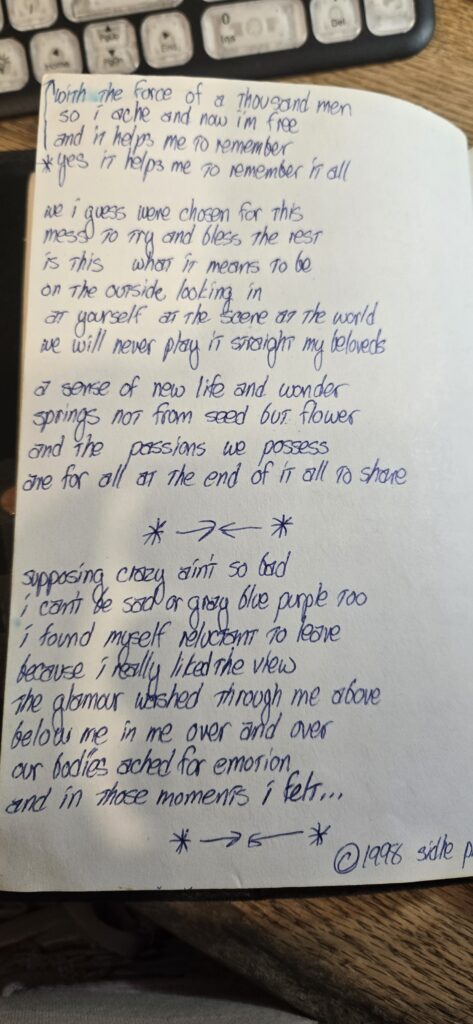 0
Ins
Del
PgUp
Home
PgDn
End
with the force of a thousand men
so i ache and now i'm free
and it helps me to remember
*yes it helps me to remember it all
we i guess were chosen for this
mess to try and bless the rest
is this what it means to be
on the outside, looking in
at yourself at the scene at the world
we will never play it straight my beloveds
a sense of new life and wonder
springs not from seed but flower
and the passions we possess
are for all at the end of it all to share
* →← *
supposing crazy ain't so bad
i can't be sad or gray blue purple too
i found myself reluctant to leave
because i really liked the view
the glamour washed through me above
below me in me over and over
our bodies ached for emotion
and in those moments i felt...
* →← *
©1998 sidhe